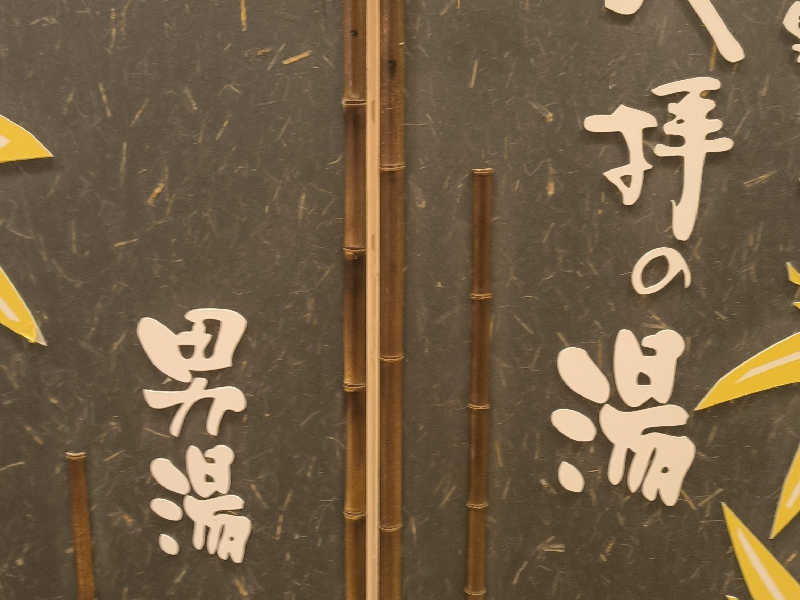 拝の湯
男湯